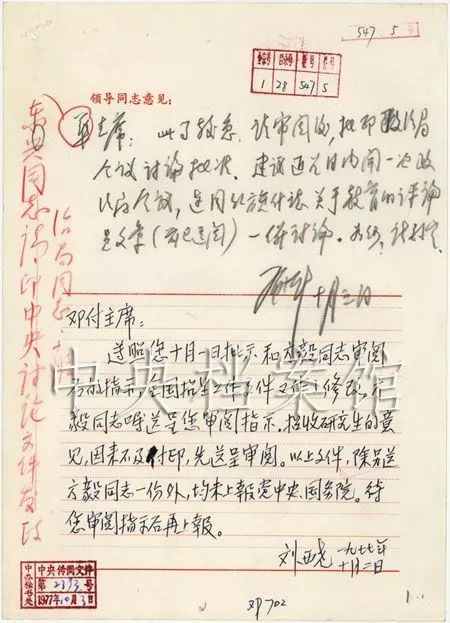 547 5号
1 28 547 5
领导同志意见：
华主席：此事较急，请审阅后，批印政治局
会议讨论批准。建议近几日内开一次政
治局会议，连同
关于教育的评论
员文章（前已送阅）一并讨论。
十月三日
东兴同志：请印中央讨论文件发政
治局同志
邓付主席：
遵照您十月一日批示和方毅同志审阅
后的指示，全国招生工作文件又作了修改，方
毅同志嘱送呈您审阅指示。招收研究生的意
见，因来不及付印，先送呈审阅。以上文件，除另送
方毅同志一份外，均未上报党中央、国务院。待
您审阅指示后再上报。
刘西尧 一九七七年
十月二日
中央档案馆
中办秘书处
中央传阅文件
第2393号
1977年10月3日
邓702